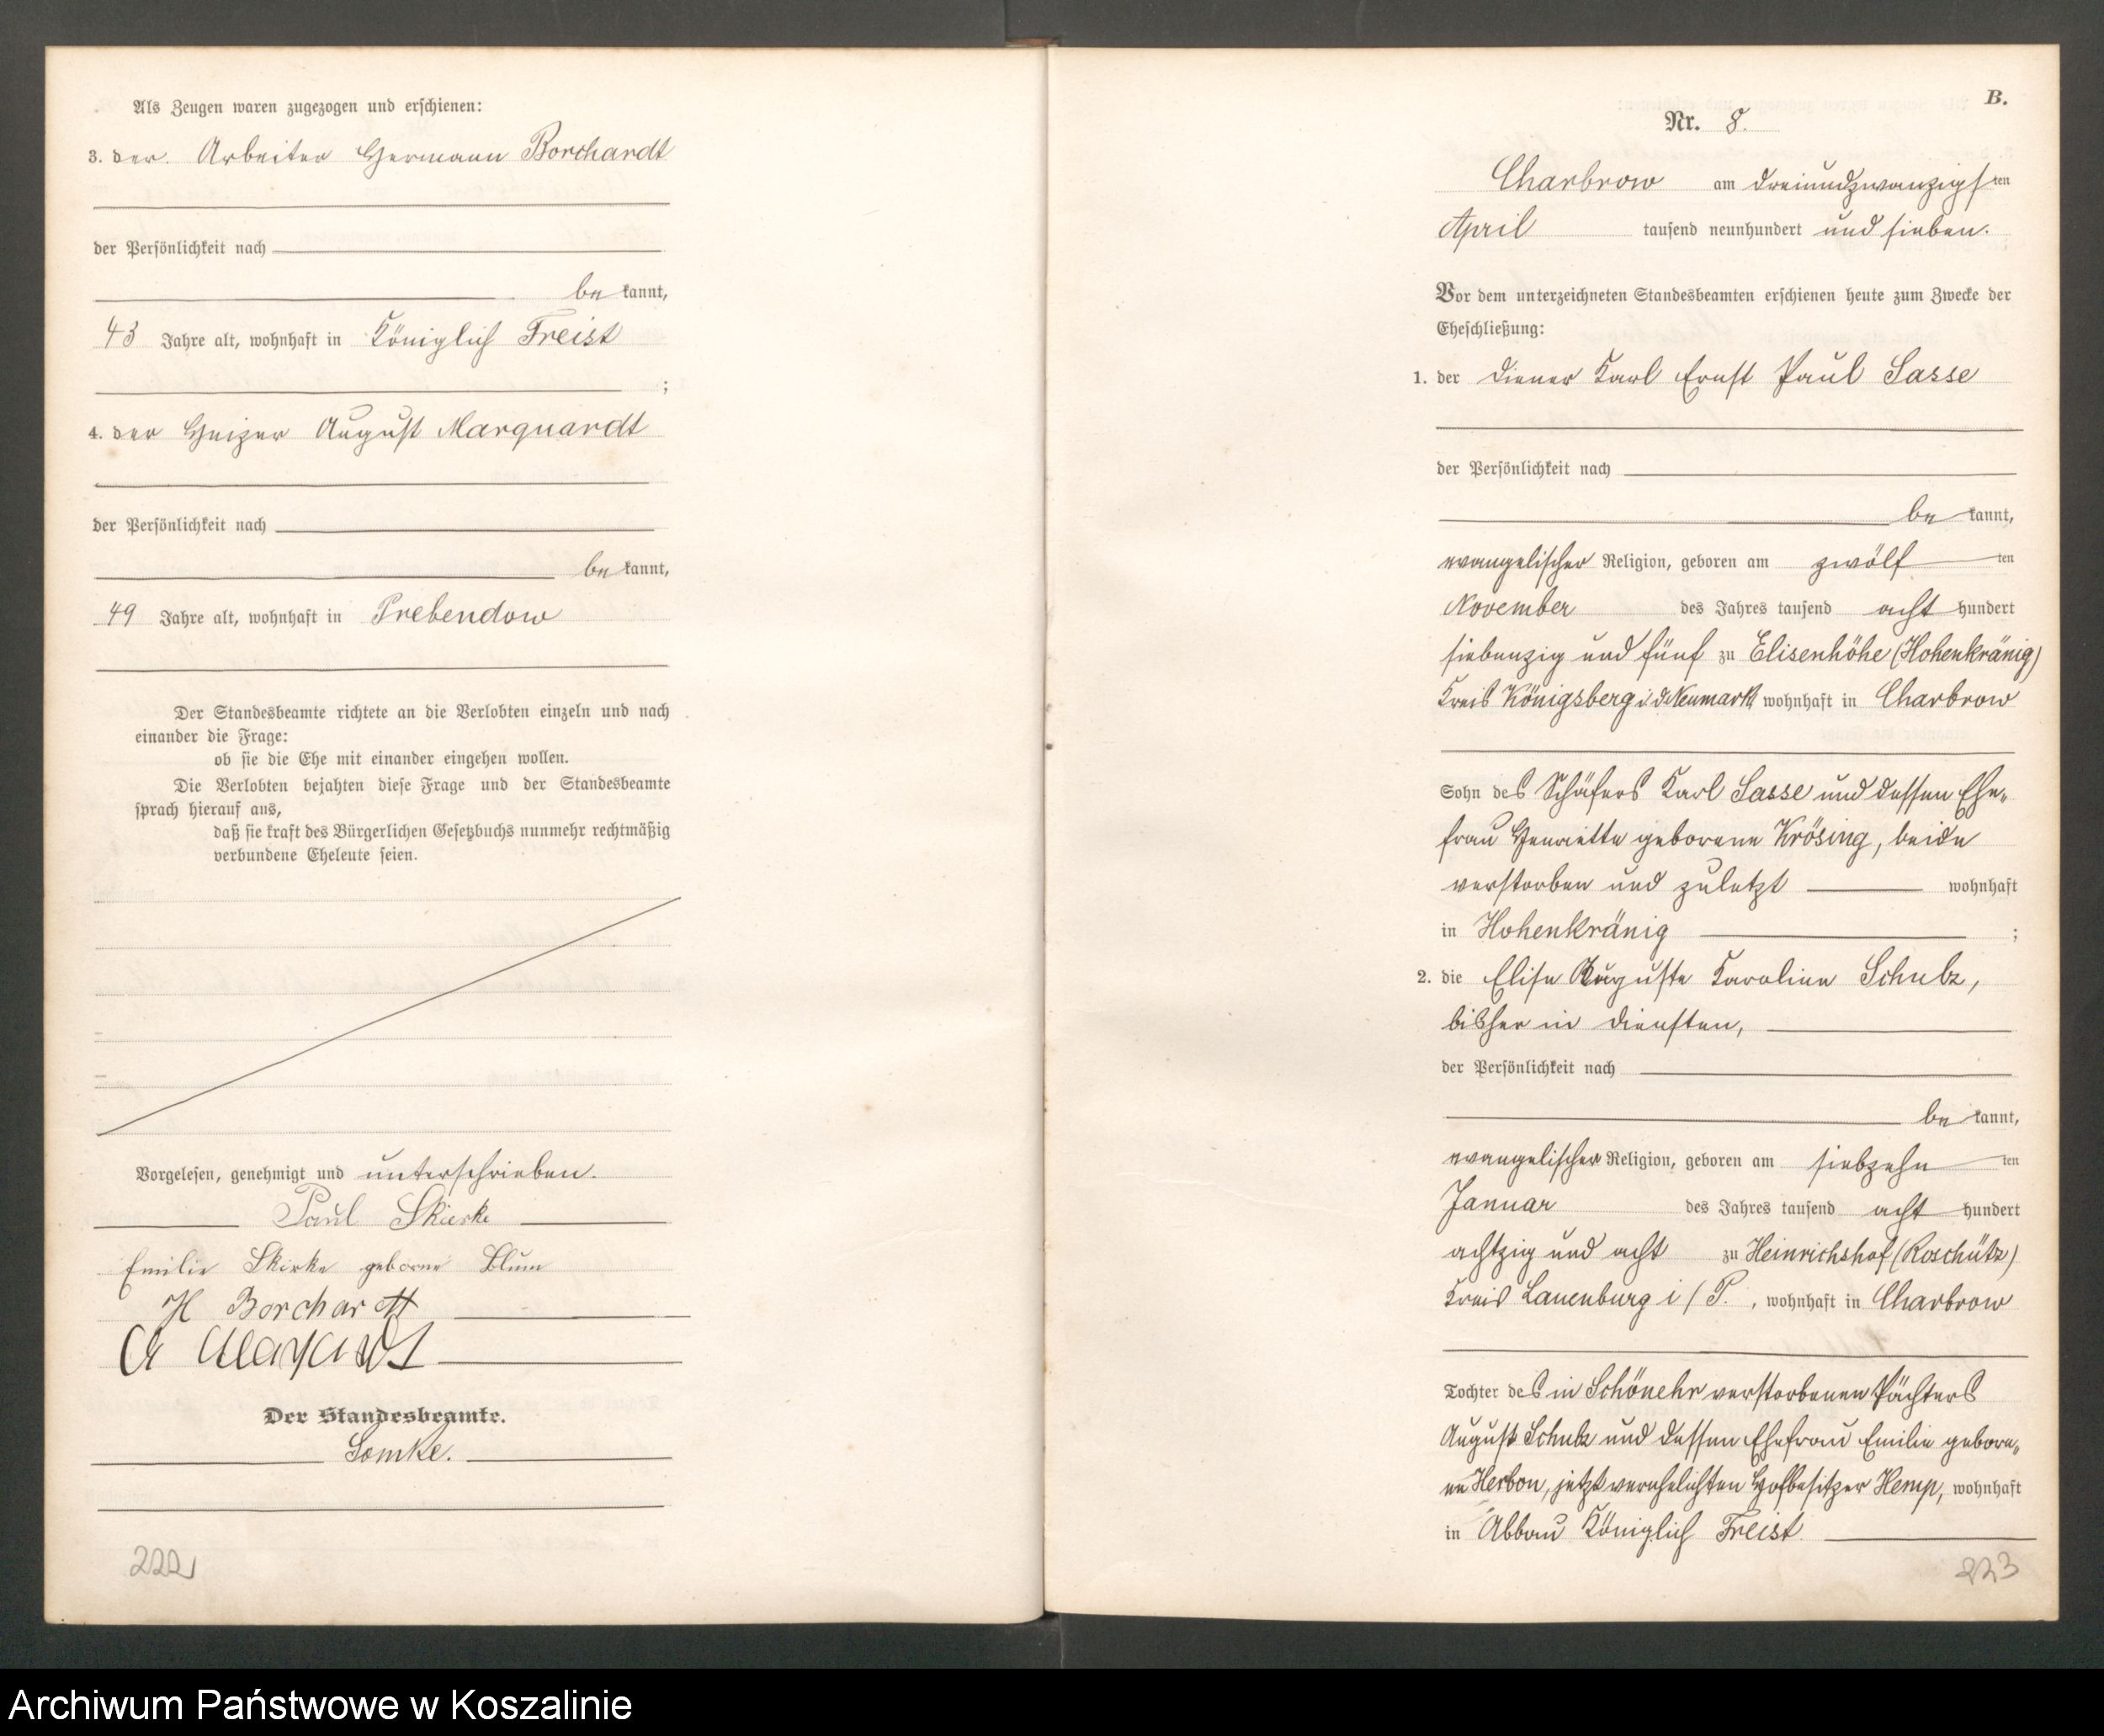 Als Zeugen waren zugezogen und erschienen:
3. der Arbeiter Hermann Borchardt
der Persönlichkeit nach
be kannt,
43 Jahre alt, wohnhaft in Königlich Freist
;
4. der Heizer August Marquardt
der Persönlichkeit nach
be kannt,
49 Jahre alt, wohnhaft in Prebendow
Der Standesbeamte richtete an die Verlobten einzeln und nach
einander die Frage:
ob sie die Ehe mit einander eingehen wollen.
Die Verlobten bejahten diese Frage und der Standesbeamte
sprach hierauf aus,
daß sie kraft des Bürgerlichen Gesetzbuchs nunmehr rechtmäßig
verbundene Eheleute seien.
Vorgelesen, genehmigt und unterschrieben.
Paul Skierke
Emilie Skirke geborne Blum
H Borchardt
A Marquardt
Der Standesbeamte.
Lomke.
222
B.
Nr. 8.
Charbrow am dreiundzwanzigsten
April tausend neunhundert und sieben.
Vor dem unterzeichneten Standesbeamten erschienen heute zum Zwecke der
Eheschließung:
1. der Diener Karl Ernst Paul Sasse
der Persönlichkeit nach
be kannt,
evangelischer Religion, geboren am zwölf ten
November des Jahres tausend acht hundert
siebenzig und fünf zu Elisenhöhe (Hohenkränig)
Kreis Königsberg i. d. Neumark wohnhaft in Charbrow
Sohn des Schäfers Karl Sasse und dessen Ehe„
frau Henriette geborene Krösing, beide
verstorben und zuletzt wohnhaft
in Hohenkränig ;
2. die Elise Auguste Karoline Schulz,
bisher in Diensten,
der Persönlichkeit nach
be kannt,
evangelischer Religion, geboren am siebzehn ten
Januar des Jahres tausend acht hundert
achtzig und acht zu Heinrichshof (Roschütz)
Kreis Lauenburg i / P. , wohnhaft in Charbrow
Tochter des in Schönehr verstorbenen Pächters
August Schulz und dessen Ehefrau Emilie gebore„
ne Herbon, jetzt verehelichten Hofbesitzer Hemp, wohnhaft
in Abbau Königlich Freist
223
Archiwum Państwowe w Koszalinie